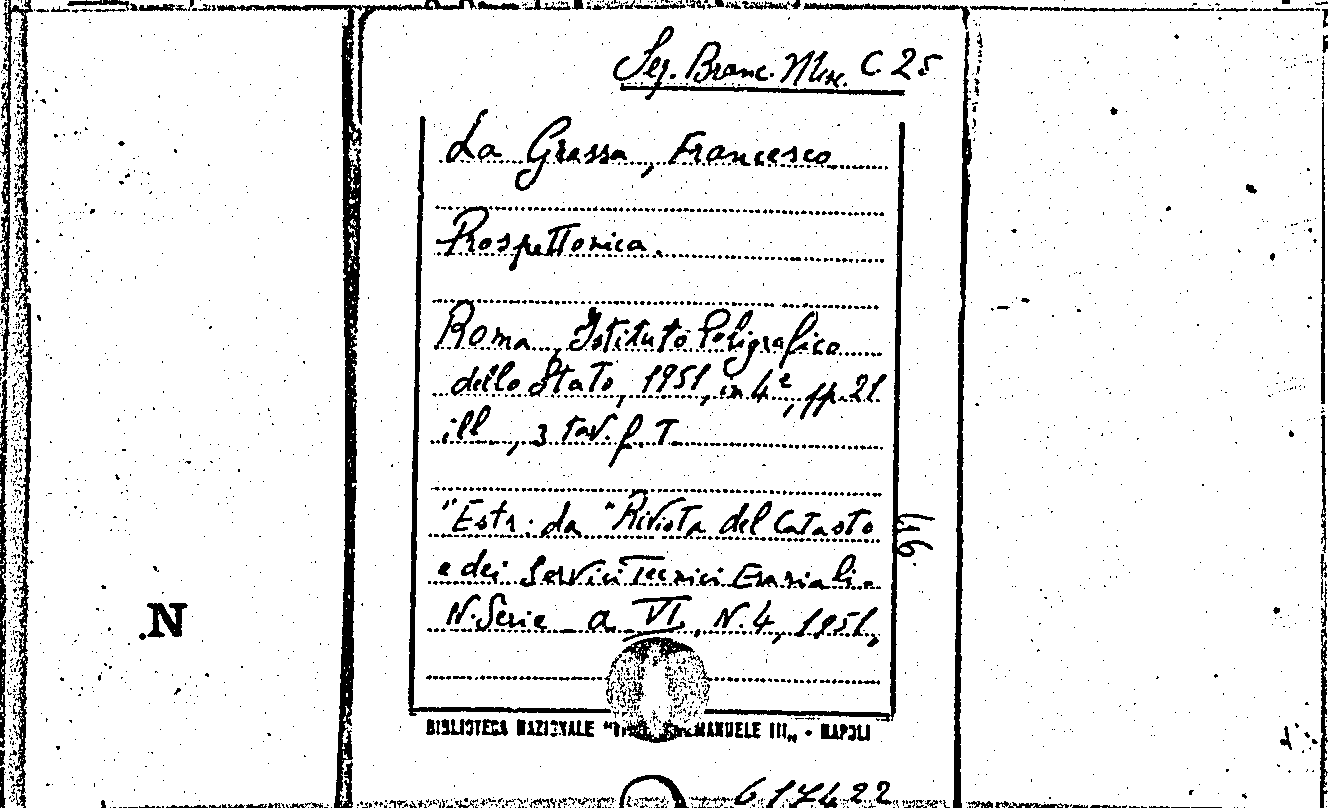 Seq. Branc. Misc. C 25
La Grassa, Francesco
Prospettonica.
Roma, Istituto Poligrafico
dello Stato, 1951, in 4º, pp. 21
ill., 3 tav. f. T.
"Estr. da "Rivista del Catasto
e dei Servizi Tecnici Erariali.
N. Serie a VI, N. 4, 1951,
.N
BIBLIOTECA NAZIONALE EMANUELE III„ - NAPOLI
617422